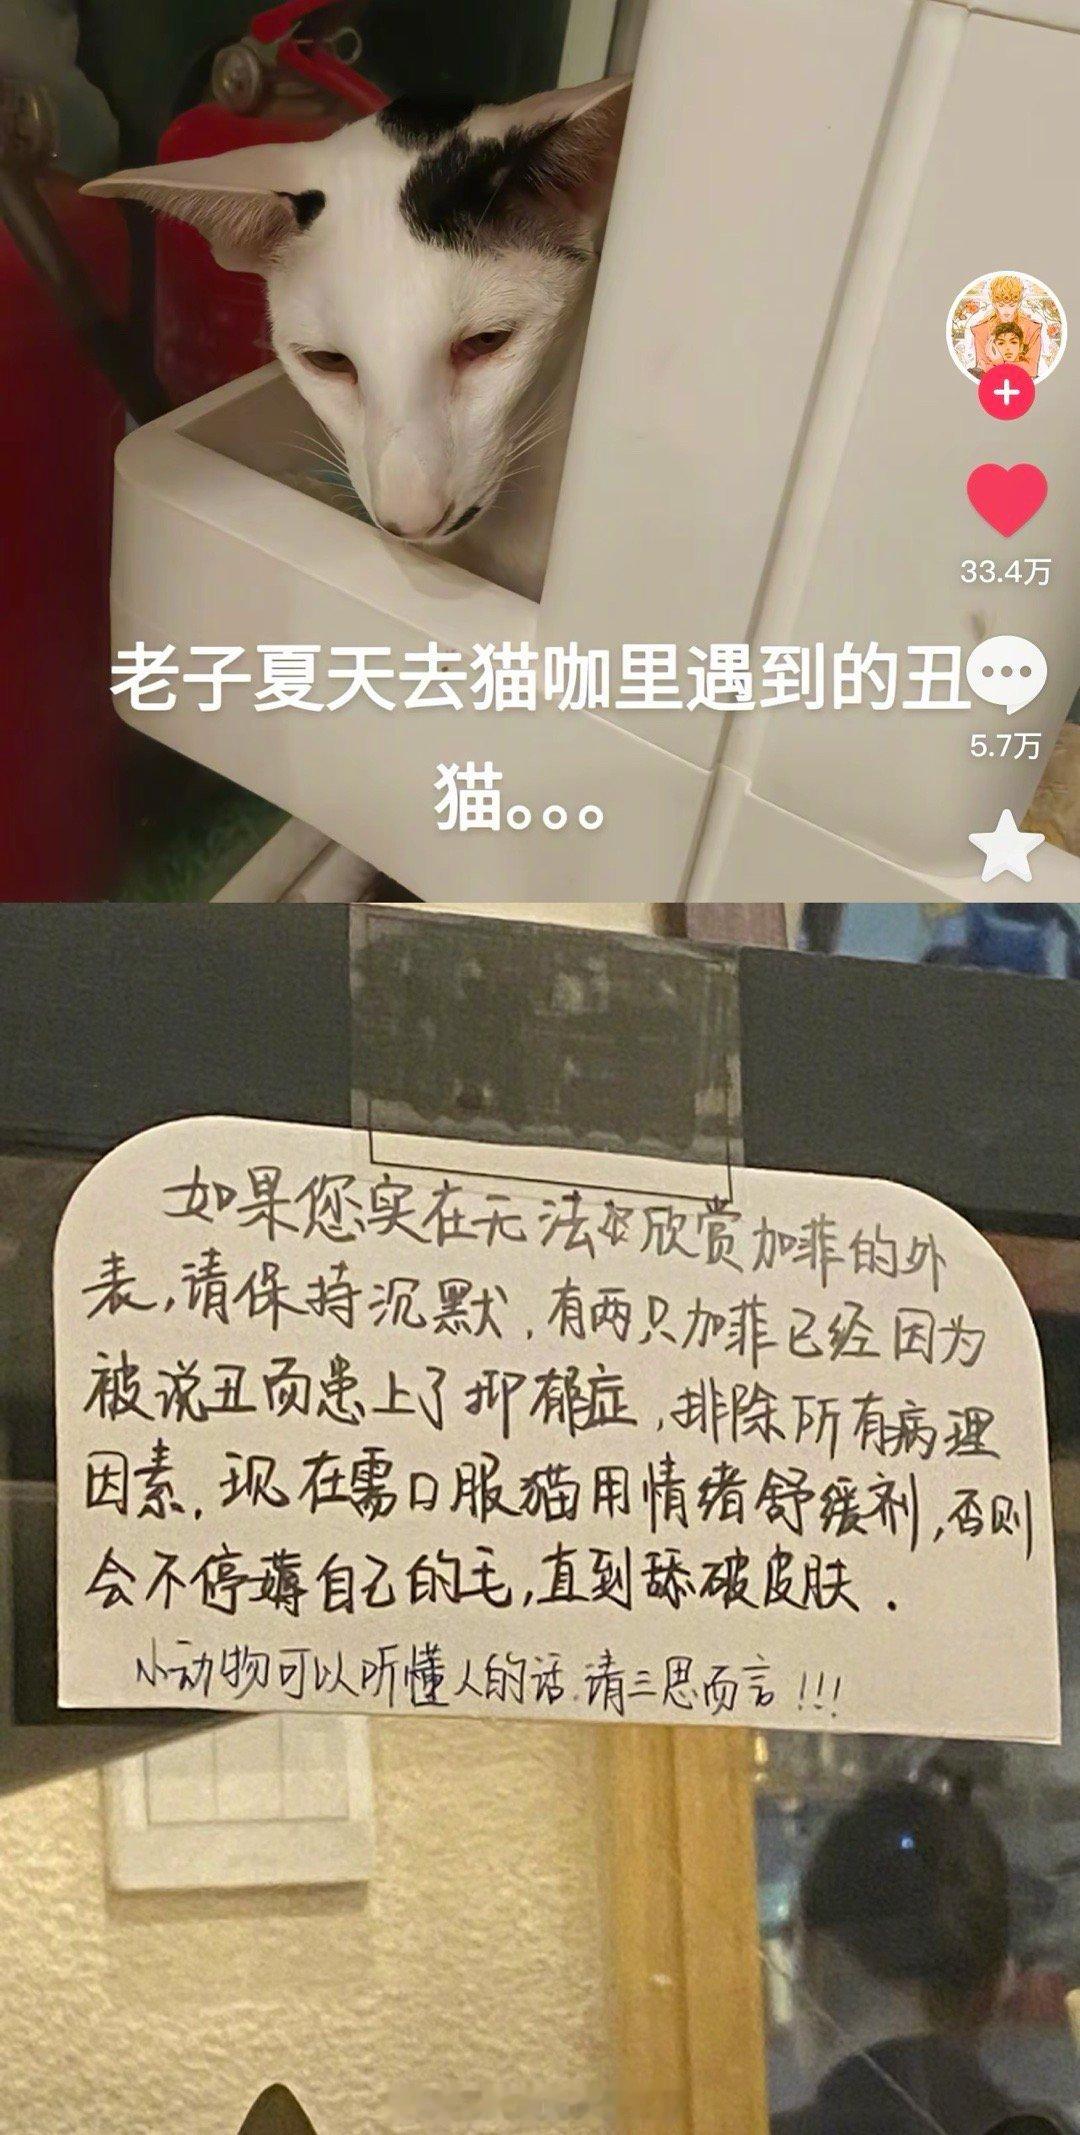 33.4万
老子夏天去猫咖里遇到的丑
5.7万
猫。。。
如果您实在无法欣赏加菲的外
表,请保持沉默,有两只加菲已经因为
被说丑而患上了抑郁症,排除所有病理
因素.现在需口服猫用情绪舒缓剂,否则
会不停薅自己的毛,直到舔破皮肤.
小动物可以听懂人的话.请三思而言!!!